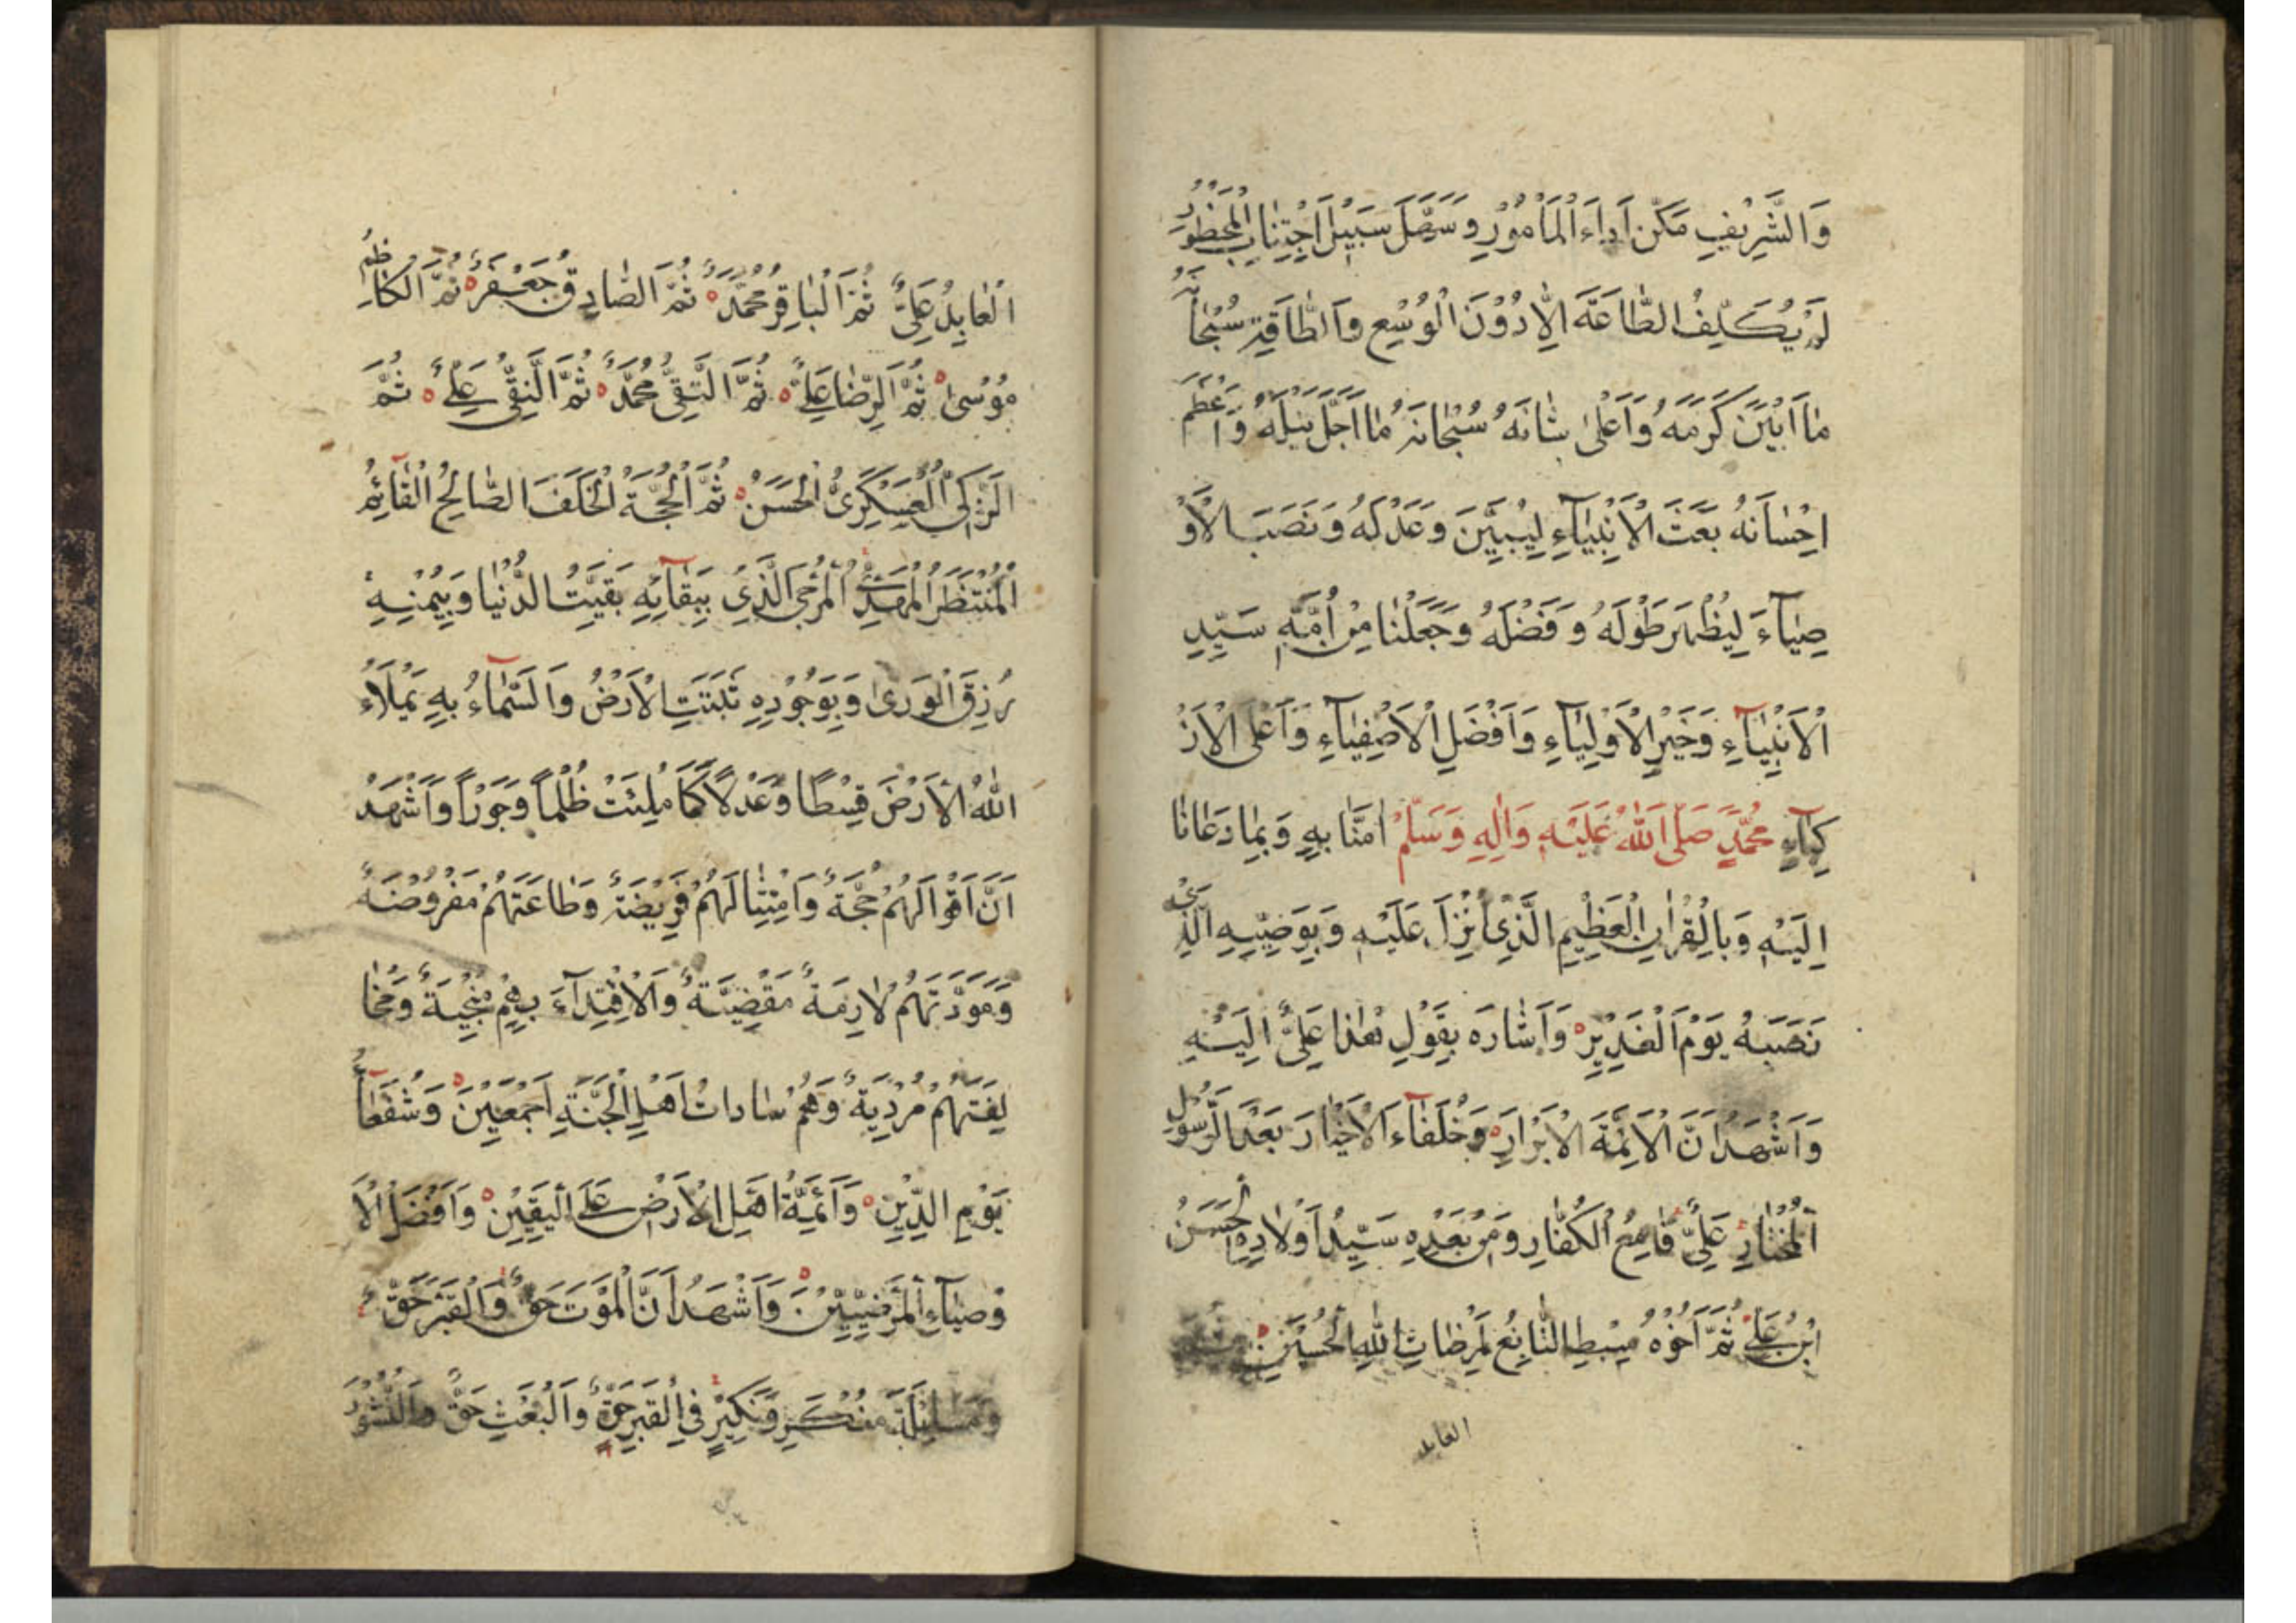 وَالشَّرِيْفِ مَكَّنَ اَدَاءَ الْمَاْمُوْرِ وَسَهَّلَ سَبِيْلَ اجْتِنَابِ الْمَحْظُوْرِ
لَمْ يُكَلِّفُ الطَّاعَةَ اِلَّا دُوْنَ الْوُسْعِ وَالطَّاقَةِ سُبْحَانَهُ
مَا اَبْيَنَ كَرَمَهُ وَاَعْلٰى شَانَهُ سُبْحَانَهُ مَا اَجَلَّ نَيْلَهُ وَاَعْظَمَ
اِحْسَانَهُ بَعَثَ الْاَنْبِيَآءِ لِيُبَيِّنَ وَعَدْلَهُ وَنَصَبَ الْاَوْ
صِيَآءَ لِيُظْهَرَ طَوْلَهُ وَفَضْلَهُ وَجَعَلْنَا مِنْ اُمَّةِ سَيِّدِ
الْاَنْبِيَآءِ وَخَيْرِ الْاَوْلِيَآءِ وَاَفْضَلِ الْاَصْفِيَآءِ وَاَعْلَى الْاَزْ
كِيَآءِ مُحَمَّدٍ صَلَّى اللّٰهُ عَلَيْهِ وَاٰلِهِ وَسَلَّمَ اٰمَنَّا بِهِ وَبِمَا دَعَانَا
اِلَيْهِ وَبِالْقُرْاٰنِ الْعَظِيْمِ الَّذِىْ اُنْزِلَ عَلَيْهِ وَبِوَصِيِّهِ الَّذِىْ
نَصَبَهُ يَوْمَ الْغَدِيْرِ وَاَشَارَه بِقَوْلِ هٰذَا عَلِىٌّ اِلَيْهِ
وَاَشْهَدُ اَنَّ الْاَئِمَّةَ الْاَبْرَارِ وَخُلَفَآءَ الْاَخْيَارَ بَعْدَ الرَّسُوْلِ
الْمُخْتَارِ عَلِىٌّ قَامِعُ الْكُفَّارِ وَمِنْ بَعْدِهِ سَيِّدُ اَوْلَادِهِ الْحَسَنُ
ابْنُ عَلِىٍّ ثُمَّ اَخُوْهُ سِبْطِ التَّابِعُ لِمَرْضَاتِ اللّٰهِ الْحُسَيْنِ
العابد
الْعَابِدُ عَلِىٌّ ثُمَّ الْبَاقِرُ مُحَمَّدٌ ثُمَّ الصَّادِقُ جَعْفَرٌ ثُمَّ الْكَاظِمُ
مُوْسٰى ثُمَّ الرِّضَا عَلِىٌّ ثُمَّ التَّقِىُّ مُحَمَّدٌ ثُمَّ النَّقِىُّ عَلِىٌّ ثُمَّ
الزَّكِىُّ الْعَسْكَرِىُّ الْحَسَنُ ثُمَّ الْحُجَّةُ الْخَلَفَ الصَّالِحُ الْقَآئِمُ
الْمُنْتَظَرُ الْمَهْدِىُّ الْمُرْجَى الَّذِىْ بِبَقَآئِهِ بَقِيَتِ الدُّنْيَا وَبِيُمْنِهِ
رُزِقَ الْوَرٰى وَبِوُجُوْدِهِ ثَبَتَتِ الْاَرْضُ وَالسَّمَآءُ بِهِ يَمْلَاءُ
اللّٰهُ الْاَرْضَ قِسْطًا وَعَدْلًا كَمَا مُلِئَتْ ظُلْمًا وَجَوْرًا وَاَشْهَدُ
اَنَّ اَقْوَالَهُمْ حُجَّةٌ وَامْتِثَالَهُمْ فَرِيْضَةٌ وَطَاعَتَهُمْ مَفْرُوْضَةٌ
وَمَوَدَّتَهُمْ لَازِمَةٌ مَقْضِيَّةٌ وَالْاِقْتِدَآءَ بِهِمْ مُنْجِيَةٌ وَمُخَا
لِفَتَهُمْ مُرْدِيَةٌ وَهُمْ سَادَاتُ اَهْلِ الْجَنَّةِ اَجْمَعِيْنَ وَشُفَعَآءُ
يَوْمِ الدِّيْنِ وَاَئِمَّةُ اَهْلِ الْاَرْضِ عَلَى الْيَقِيْنِ وَاَفْضَلُ الْاَ
وْصِيَآءِ الْمَرْضِيِّيْنَ وَاَشْهَدُ اَنَّ الْمَوْتَ حَقٌّ وَالْقَبْرَ حَقٌّ
وَمَسْئَلَةَ مُنْكَرٍ وَنَكِيْرٍ فِى الْقَبْرِ حَقٌّ وَالْبَعْثِ حَقٌّ وَالنُّشُوْرَ